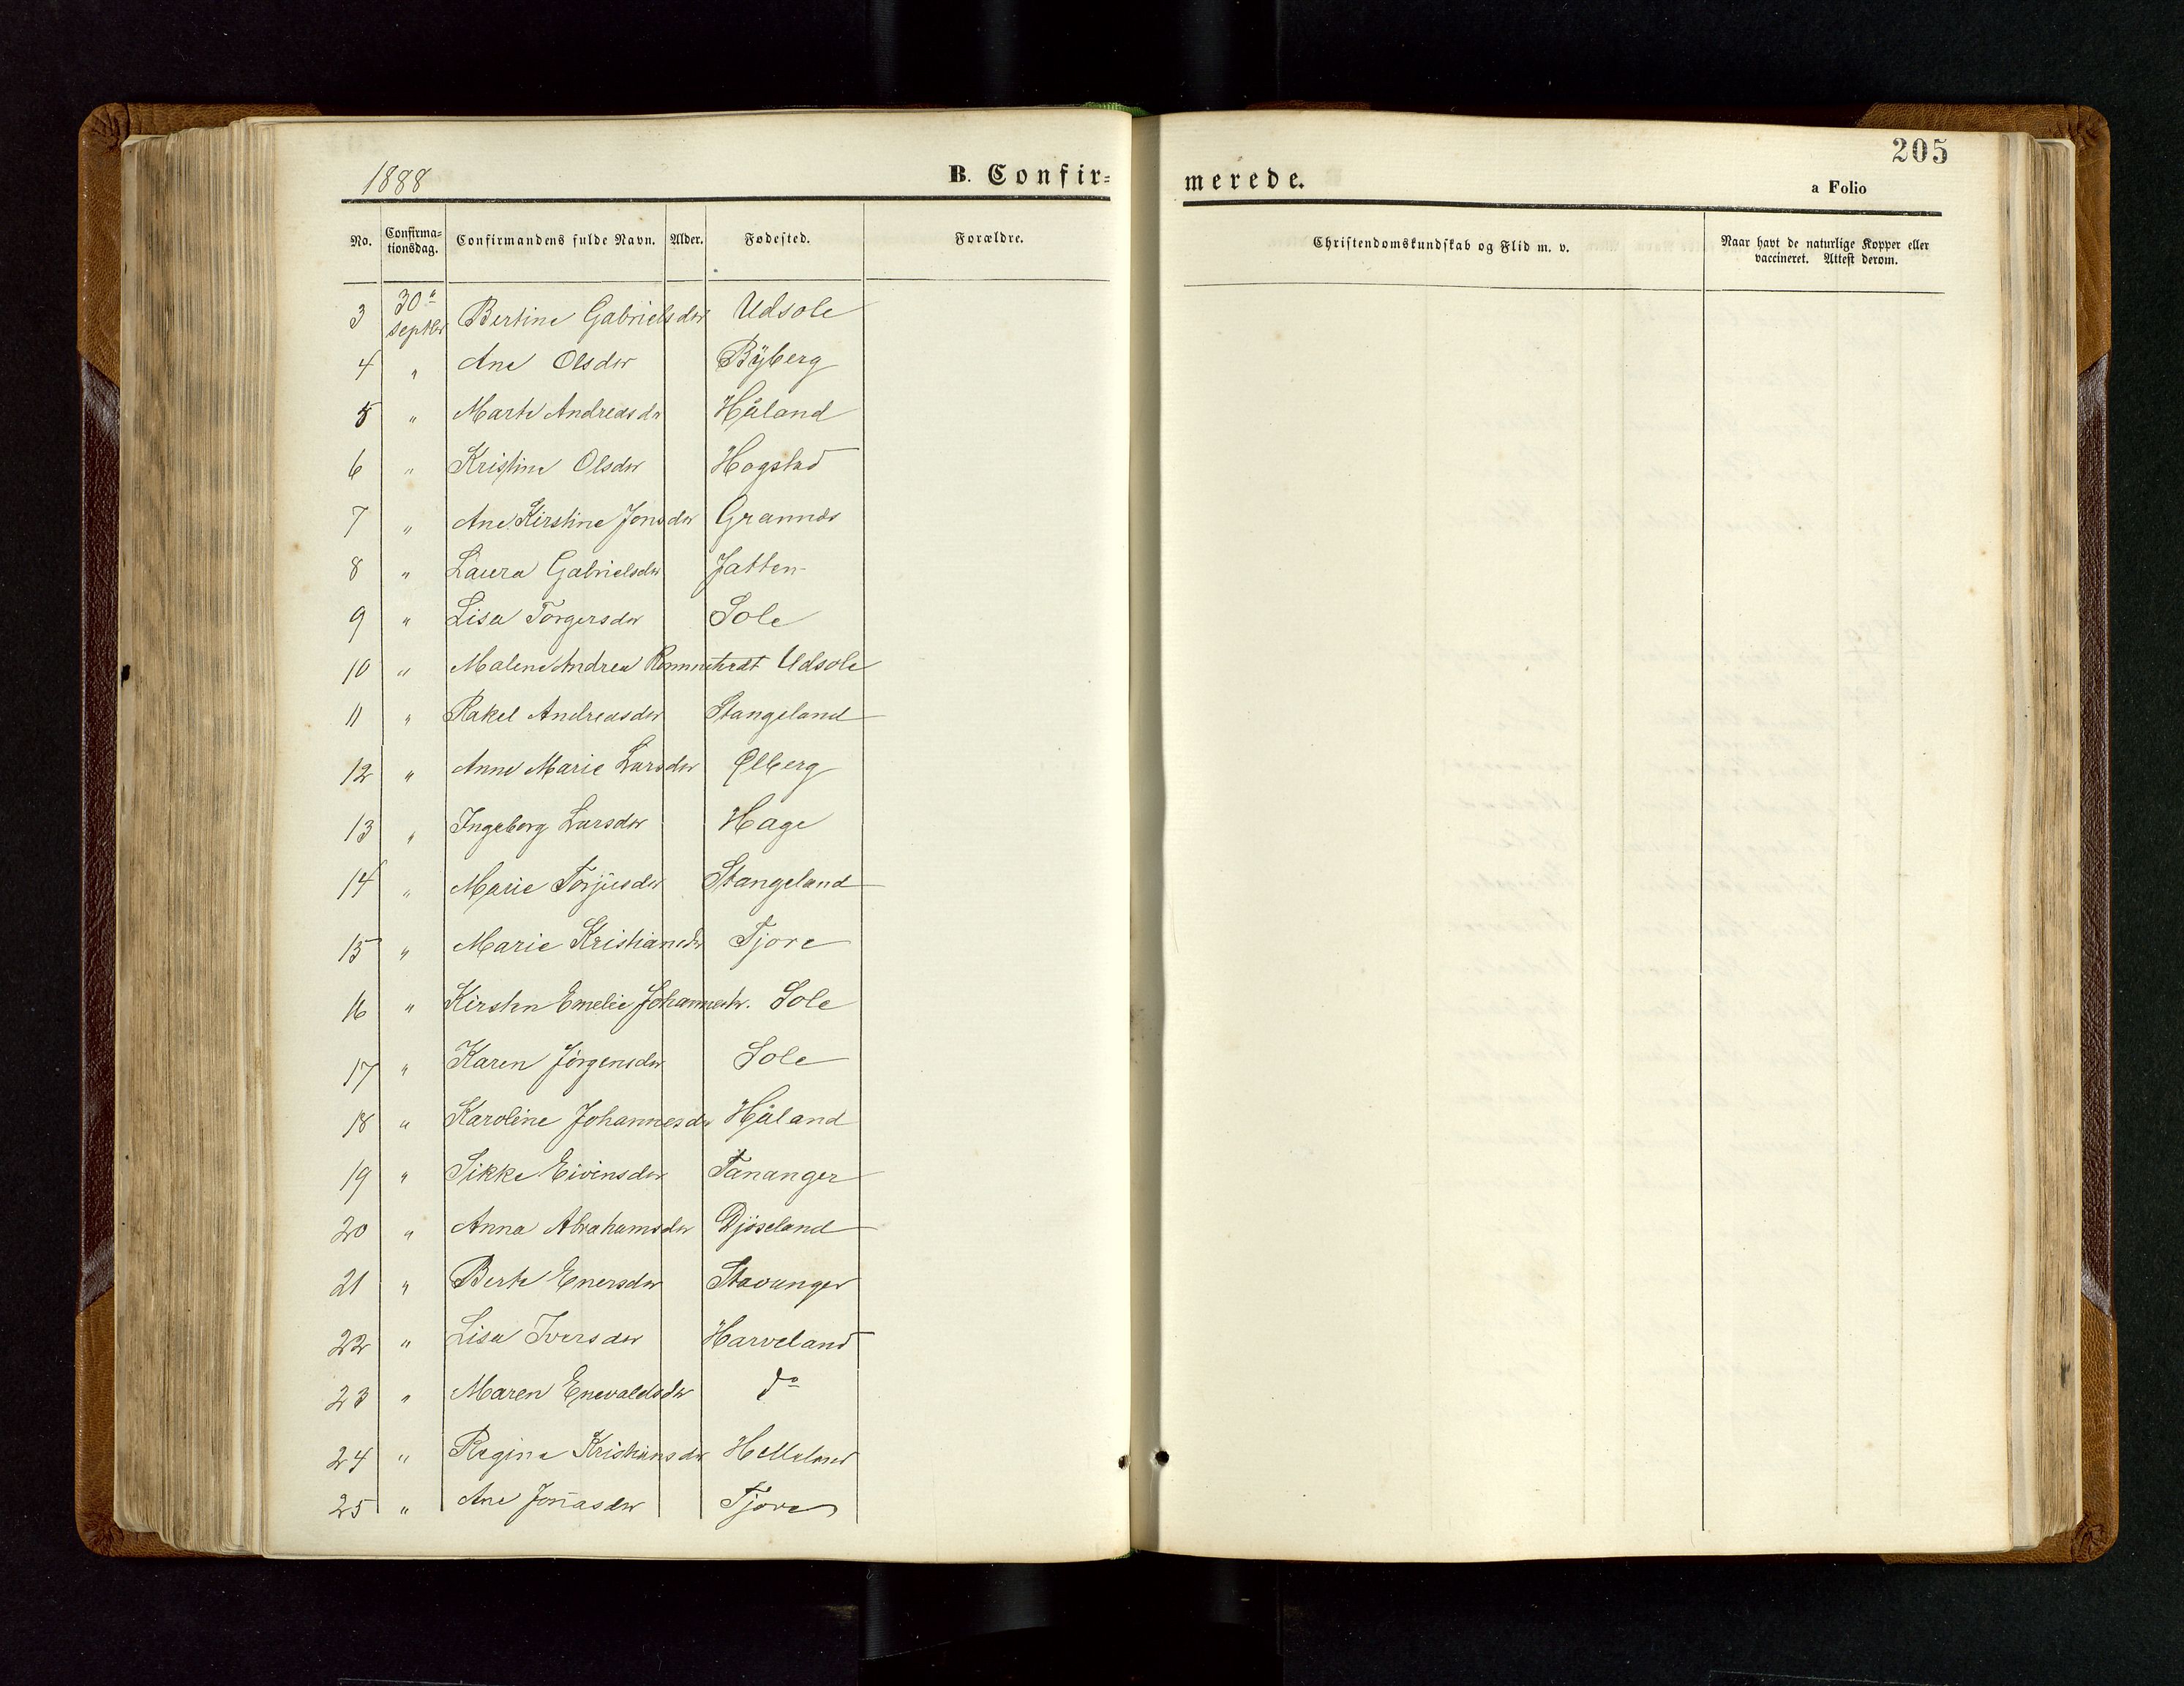 1888
B. Confir=
merede.
205
a Folio
No. Confirma=tionsdag. Confirmandens fulde Navn. Alder. Fødested. Forældre. Christendomskundskab og Flid m. v. Naar havt de naturlige Kopper eller vaccineret. Attest derom.
3 30te Septbr Bertine Gabrielsdtr Udsole
4 " Ane Olsdtr Byberg
5 " Marte Andreasdr Håland
6 " Kristine Olsdtr Hogstad
7 " Ane Kirstine Jonsdtr Grannes
8 " Laura Gabrielsdtr Jatten
9 " Lisa Torgersdtr Sole
10 " Malene Andrea Udsole
11 " Rakel Andreasdtr Stangeland
12 " Anne Marie Larsdtr Ølberg
13 " Ingeborg Larsdtr Hage
14 " Marie Torjusdtr Stangeland
15 " Marie Kristiansdtr Tjore
16 " Kirsten Emelie Johannesdtr. Sole
17 " Karen Jørgensdtr Sole
18 " Karoline Johannesdr Håland
19 " Sikke Eivinsdtr Tananger
20 " Anna Abrahamsdtr Djøseland
21 " Berte Enersdtr Stavanger
22 " Lisa Iversdtr Harveland
23 " Maren Enevaldsdtr do
24 " Regina Kristiansdtr Helleland
25 " Ane Jonasdtr Tjore